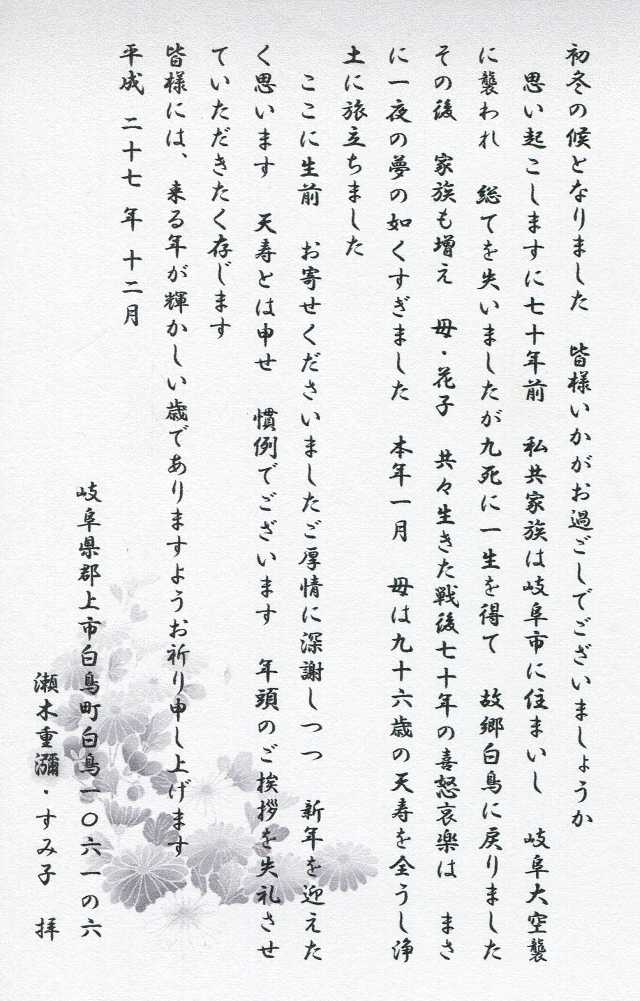 初冬の候となりました　皆様いかがお過ごしでございましょうか
思い起こしますに七十年前　私共家族は岐阜市に住まいし　岐阜大空襲
に襲われ　総てを失いましたが九死に一生を得て　故郷白鳥に戻りました
その後　家族も増え　母・花子　共々生きた戦後七十年の喜怒哀楽は　まさ
に一夜の夢の如くすぎました　本年一月　母は九十六歳の天寿を全うし浄
土に旅立ちました
ここに生前　お寄せくださいましたご厚情に深謝しつつ　新年を迎えた
く思います　天寿とは申せ　慣例でございます　年頭のご挨拶を失礼させ
ていただきたく存じます
皆様には、来る年が輝かしい歳でありますようお祈り申し上げます
平成　二十七　年　十二月
岐阜県郡上市白鳥町白鳥一〇六一の六
瀬木重瀰・すみ子　拝